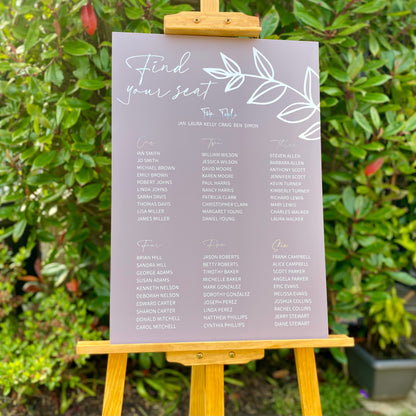 Find
your seat
Top Table
JAN LAURA KELLY CRAIG BEN SIMON
One
IAN SMITH
JO SMITH
MICHAEL BROWN
EMILY BROWN
ROBERT JOHNS
LINDA JOHNS
SARAH DAVIS
THOMAS DAVIS
LISA MILLER
JAMES MILLER
Two
WILLIAM WILSON
JESSICA WILSON
DAVID MOORE
KAREN MOORE
PAUL HARRIS
NANCY HARRIS
PATRICIA CLARK
CHRISTOPHER CLARK
MARGARET YOUNG
DANIEL YOUNG
Three
STEVEN ALLEN
BARBARA ALLEN
ANTHONY SCOTT
JENNIFER SCOTT
KEVIN TURNER
KIMBERLY TURNER
RICHARD LEWIS
MARY LEWIS
CHARLES WALKER
LAURA WALKER
Four
BRIAN HILL
SANDRA HILL
GEORGE ADAMS
SUSAN ADAMS
KENNETH NELSON
DEBORAH NELSON
EDWARD CARTER
SHARON CARTER
DONALD MITCHELL
CAROL MITCHELL
Five
JASON ROBERTS
BETTY ROBERTS
TIMOTHY BAKER
MICHELLE BAKER
MARK GONZALEZ
DOROTHY GONZALEZ
JOSEPH PEREZ
LINDA PEREZ
MATTHEW PHILLIPS
CYNTHIA PHILLIPS
Six
FRANK CAMPBELL
ALICE CAMPBELL
SCOTT PARKER
ANGELA PARKER
ERIC EVANS
MELISSA EVANS
JOSHUA COLLINS
RACHEL COLLINS
JERRY STEWART
DIANE STEWART